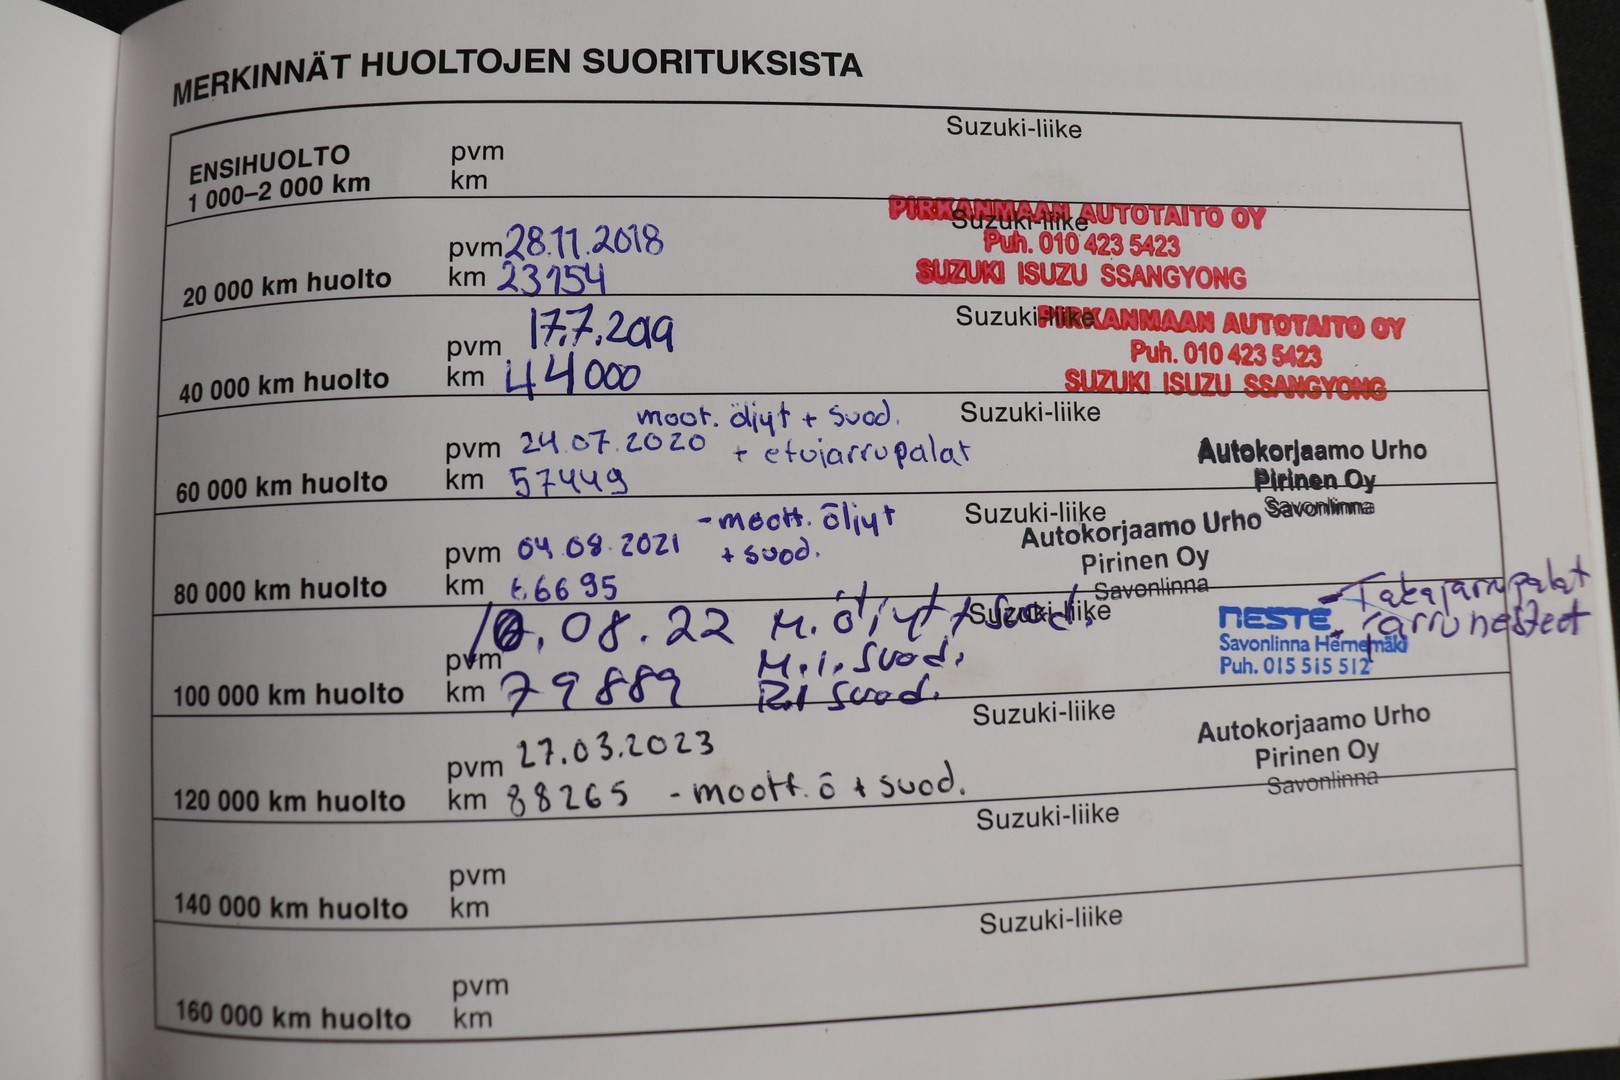 MERKINNÄT HUOLTOJEN SUORITUKSISTA
ENSIHUOLTO
1 000–2 000 km
pvm
km
Suzuki-liike
20 000 km huolto
pvm 28.11.2018
km 23154
Suzuki-liike
PIRKANMAAN AUTOTAITO OY
Puh. 010 423 5423
SUZUKI ISUZU SSANGYONG
40 000 km huolto
pvm 17.7.2019
km 44000
Suzuki-liike
PIRKANMAAN AUTOTAITO OY
Puh. 010 423 5423
SUZUKI ISUZU SSANGYONG
60 000 km huolto
moot. öljyt + suod.
pvm 24.07.2020 + etujarrupalat
km 57449
Suzuki-liike
Autokorjaamo Urho
Pirinen Oy
Savonlinna
80 000 km huolto
- moott. öljyt
pvm 04.08.2021 + suod.
km 66695
Suzuki-liike
Autokorjaamo Urho
Pirinen Oy
Savonlinna
100 000 km huolto
pvm 08.22 M. öljyt + suod.
M.i. suod.
km 79889 R.i suod.
Suzuki-liike
NESTE
Savonlinna Hernemäki
Puh. 015 515 512
- Takajarrupalat
- jarrunesteet
120 000 km huolto
pvm 27.03.2023
km 88265 - moott. ö + suod.
Suzuki-liike
Autokorjaamo Urho
Pirinen Oy
Savonlinna
140 000 km huolto
pvm
km
Suzuki-liike
160 000 km huolto
pvm
km
Suzuki-liike